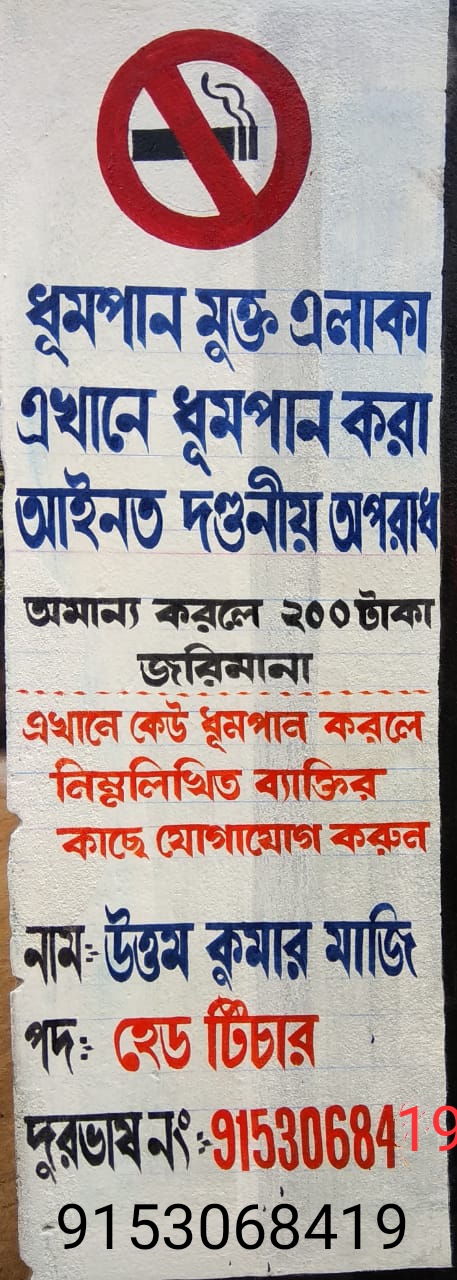 ধূমপান মুক্ত এলাকা
এখানে ধূমপান করা
আইনত দণ্ডনীয় অপরাধ
অমান্য করলে ২০০ টাকা
জরিমানা
এখানে কেউ ধূমপান করলে
নিম্নলিখিত ব্যাক্তির
কাছে যোগাযোগ করুন
নামঃ- উত্তম কুমার মাজি
পদঃ- হেড টিচার
দুরভাষ নং ঃ- 9153068419
9153068419